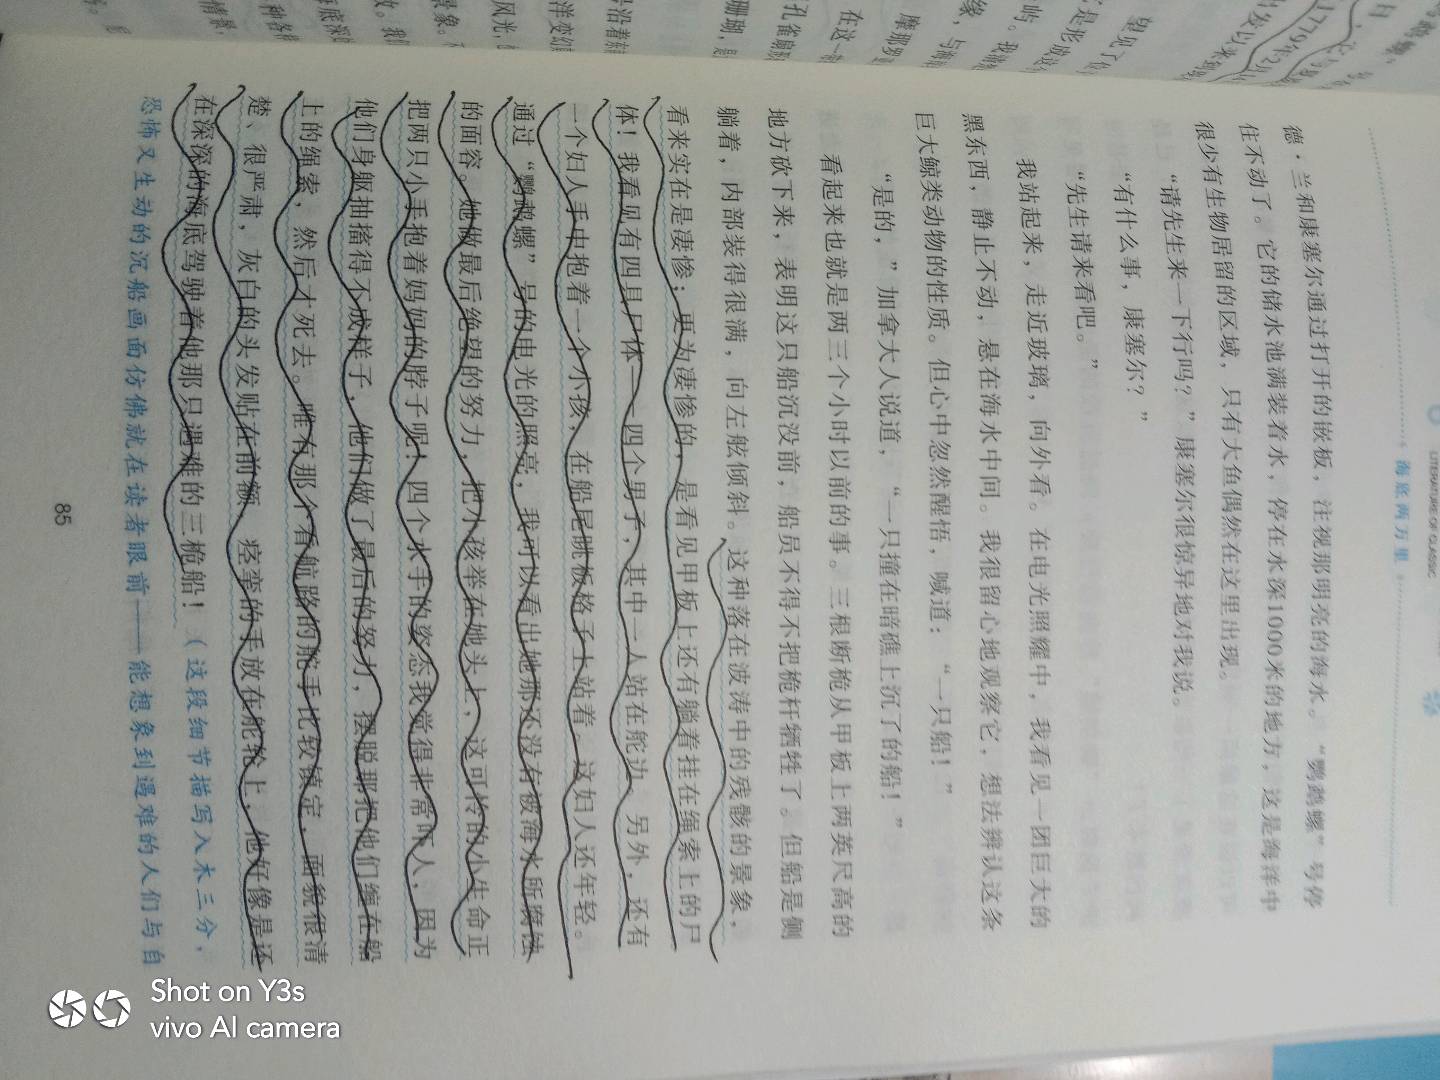 LITERATURE OF CLASSIC
海底两万里
德·兰和康塞尔通过打开的嵌板，注视那明亮的海水。“鹦鹉螺”号停
住不动了。它的储水池满装着水，停在水深1000米的地方，这是海洋中
很少有生物居留的区域，只有大鱼偶然在这里出现。
“请先生来一下行吗？”康塞尔很惊异地对我说。
“有什么事，康塞尔？”
“先生请来看吧。”
我站起来，走近玻璃，向外看。在电光照耀中，我看见一团巨大的
黑东西，静止不动，悬在海水中间。我很留心地观察它，想法辨认这条
巨大鲸类动物的性质。但心中忽然醒悟，喊道：“一只船！”
“是的，”加拿大人说道，“一只撞在暗礁上沉了的船！”
看起来也就是两三个小时以前的事。三根断桅从甲板上两英尺高的
地方砍下来，表明这只船沉没前，船员不得不把桅杆牺牲了。但船是侧
躺着，内部装得很满，向左舷倾斜。这种落在波涛中的残骸的景象，
看来实在是凄惨；更为凄惨的，是看见甲板上还有躺着挂在绳索上的尸
体！我看见有四具尸体——四个男子，其中一人站在舵边，另外，还有
一个妇人手中抱着一个小孩，在船尾眺板格子上站着。这妇人还年轻。
通过“鹦鹉螺”号的电光的照亮，我可以看出她那还没有被海水所腐蚀
的面容。她做最后绝望的努力，把小孩举在她头上，这可怜的小生命正
把两只小手抱着妈妈的脖子呢！四个水手的姿态我觉得非常吓人，因为
他们身躯抽搐得不成样子，他们做了最后的努力，摆脱那把他们缠在船
上的绳索，然后才死去。唯有那个看航路的舵手比较镇定，面貌很清
楚、很严肃，灰白的头发贴在前额，痉挛的手放在舵轮上，他好像是还
在深深的海底驾驶着他那只遇难的三桅船！（这段细节描写入木三分，
恐怖又生动的沉船画面仿佛就在读者眼前——能想象到遇难的人们与自
85
Shot on Y3s
vivo AI camera